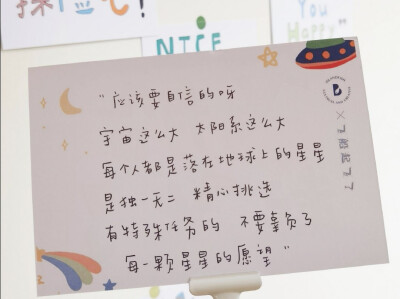 探险吧!
NICE
You
Happy"
"应该要自信的呀
宇宙这么大 太阳系这么大
每个人都是落在地球上的星星
是独一无二 精心挑选
有特殊任务的 不要辜负了
每一颗星星的愿望"